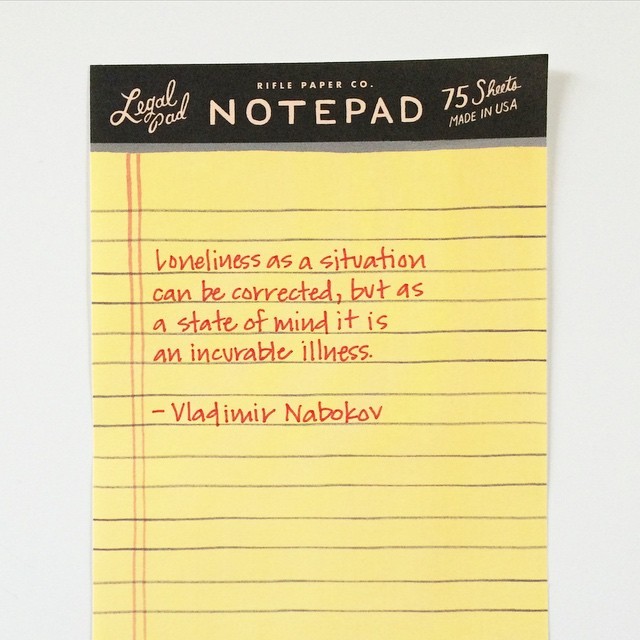 Legal
pad
RIFLE PAPER CO.
NOTEPAD
75 Sheets
MADE IN USA
Loneliness as a situation
can be corrected, but as
a state of mind it is
an incurable illness.
- Vladimir Nabokov